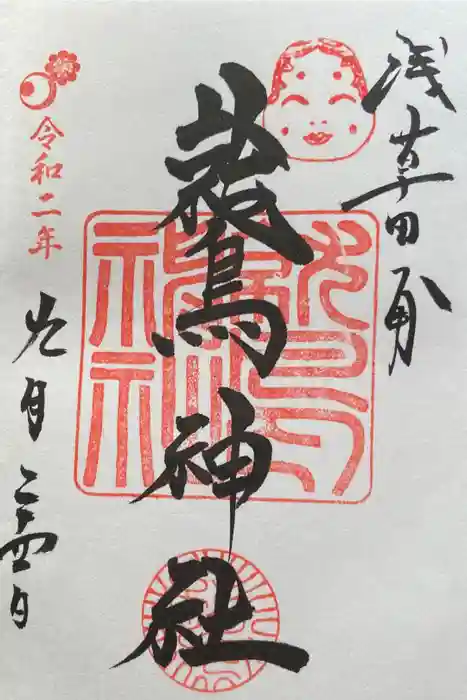 浅草田甫
鷲神社
令和二年
九月二十四日
鷲神社